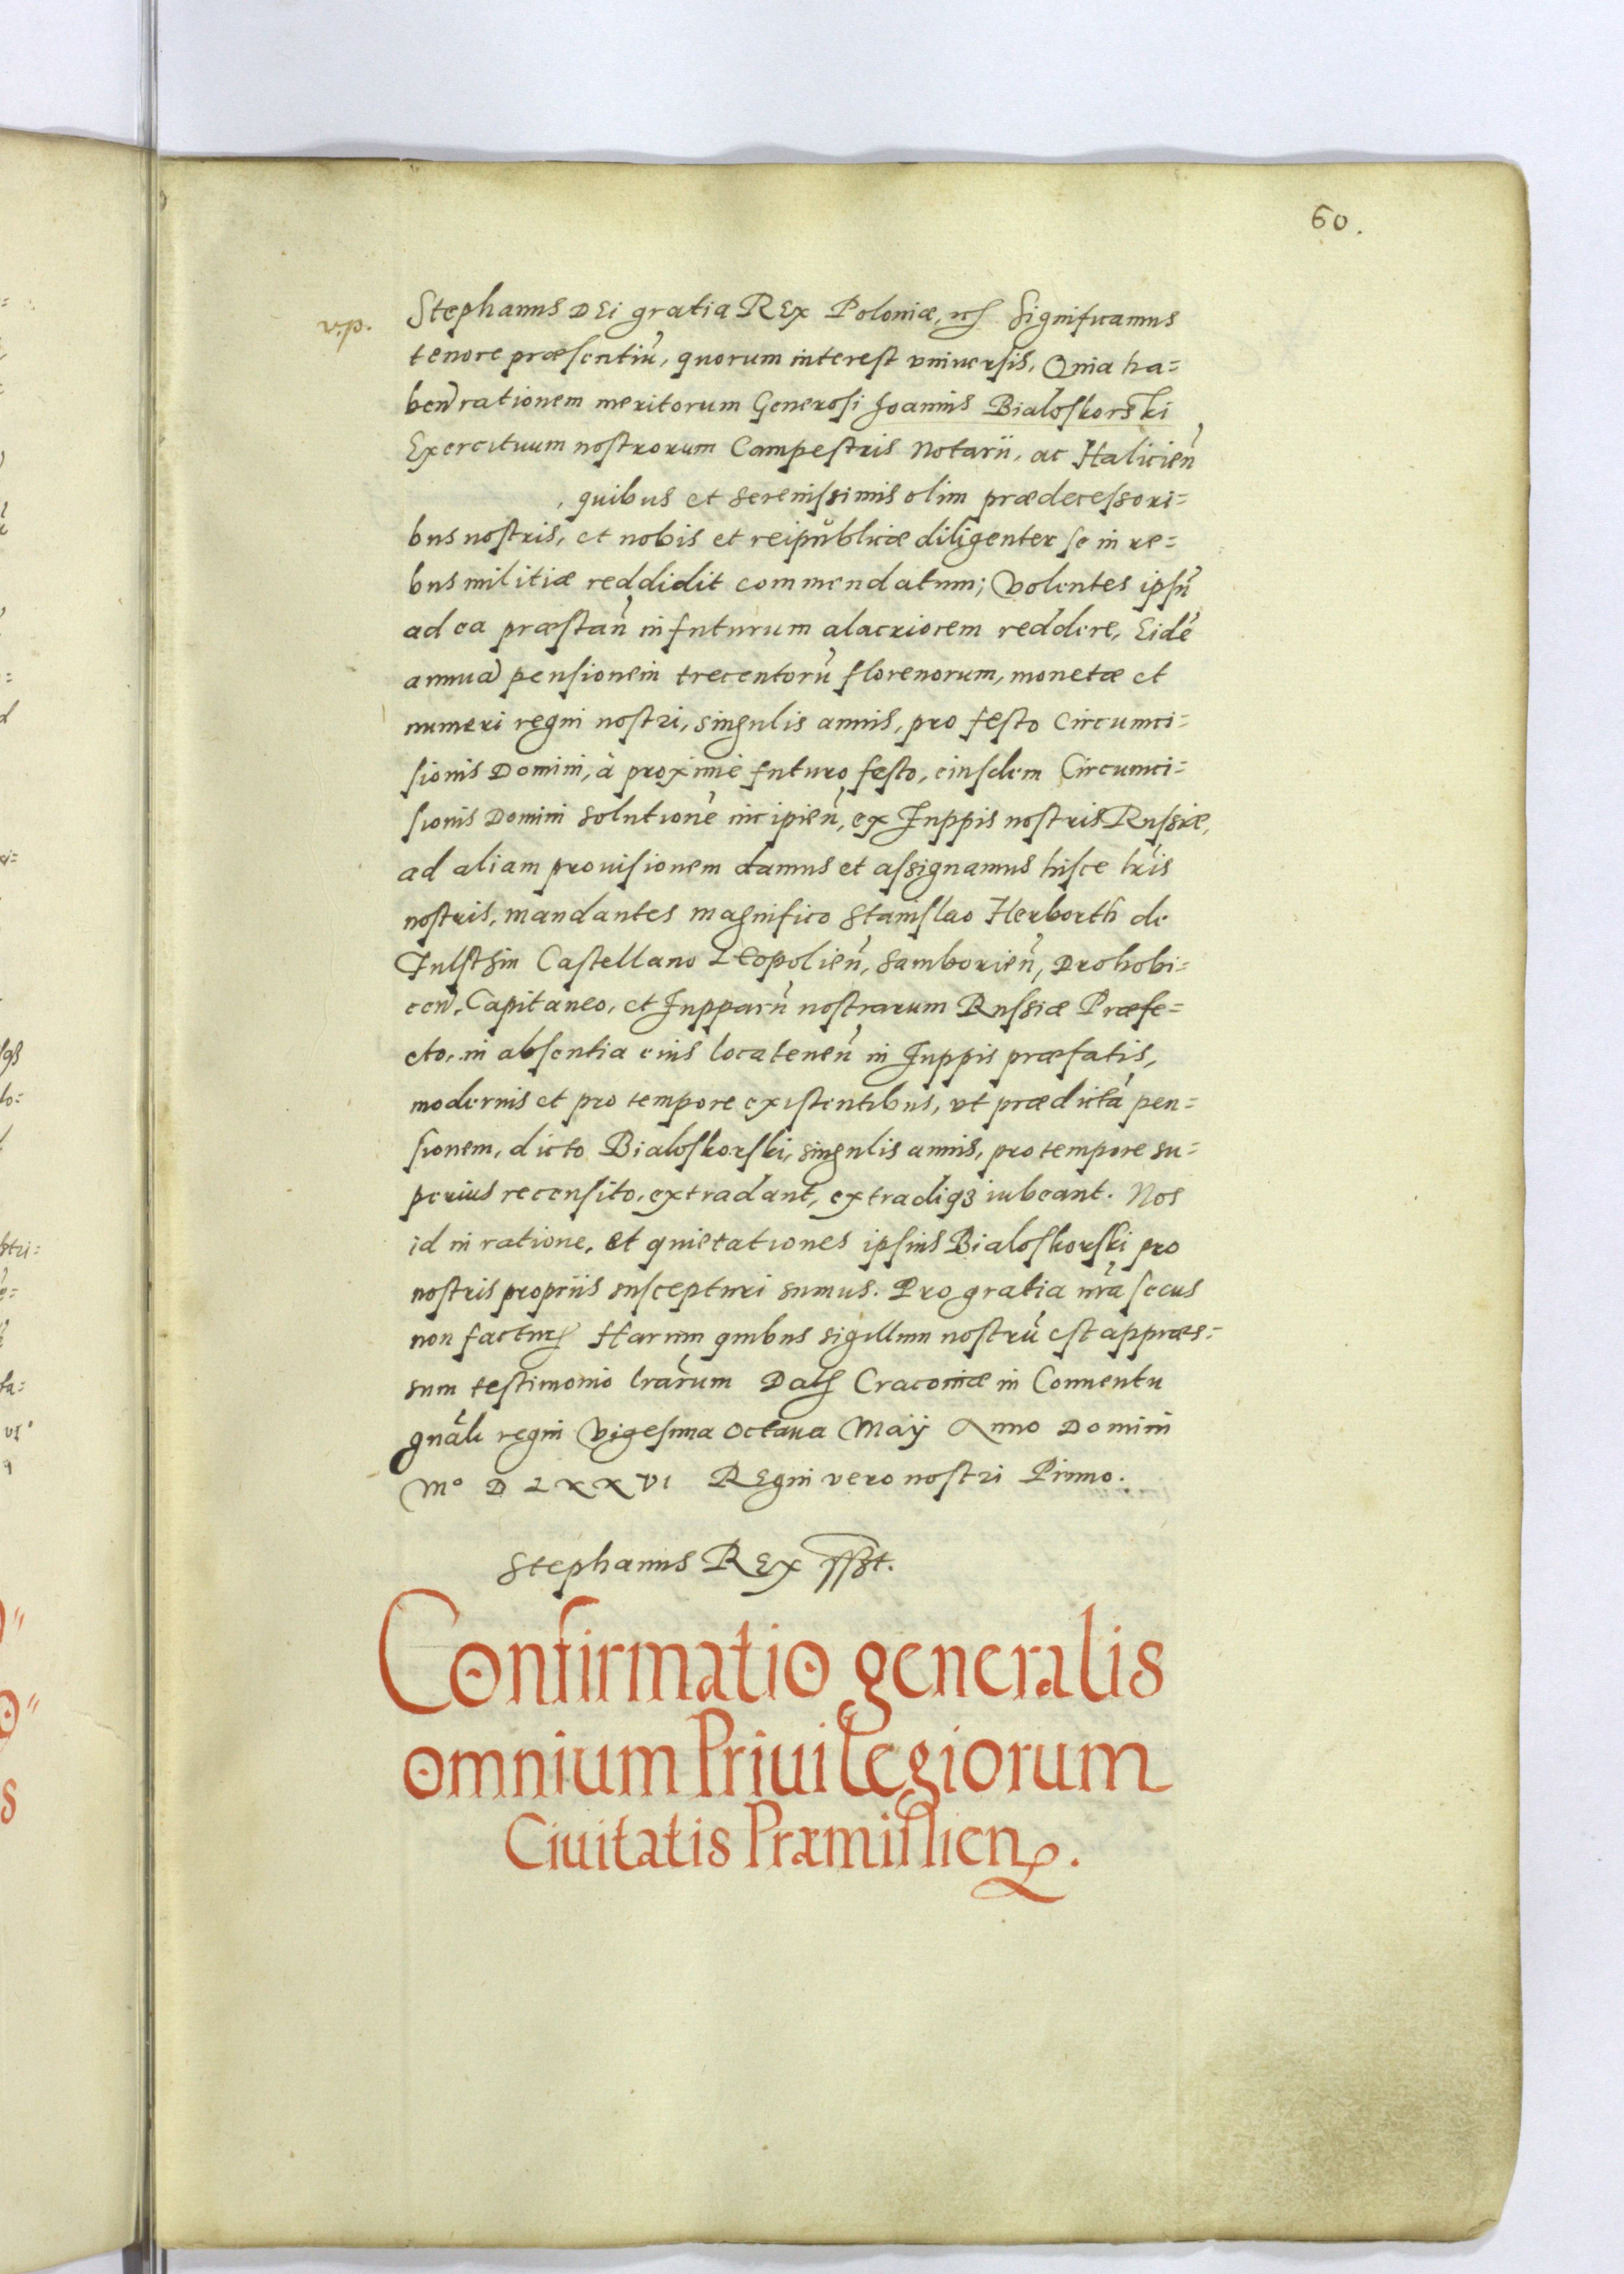 60.
v.p.
Stephanus DEi gratia REx Poloniæ, etc Significamus
tenore præsentiũ, quorum interest vniuersis, Quia ha=
beñ rationem meritorum Generosi Joannis Bialoskorski
Exercituum nostrorum Campestris Notarii, ac Halicieñ
, quibus et serenissimis olim prædecessori=
bus nostris, et nobis et reipublicæ diligenter se in re=
bus militiæ reddidit commendatum; Volentes ipsũ
ad ea præstañ in futurum alacriorem reddere, Eidẽ
annuã pensionem trecentorũ florenorum, monetæ et
numeri regni nostri, singulis annis, pro festo Circumci=
sionis Domini, à proximè futuro festo, eiusdem Circumci=
sionis Domini solutionẽ incipieñ, ex Juppis nostris Russiæ,
ad aliam prouisionem damus et assignamus hisce lr̃is
nostris, mandantes magnifico Stanislao Herborth de
Fulsthin Castellano LEopolieñ, Samborieñ, Drohobi=
ceñ, Capitaneo, et Jupparũ nostrarum Russiæ Præfe=
cto, in absentia eius locateneñ in Juppis præfatis,
modernis et pro tempore existentibus, vt prædictã pen=
sionem, dicto Bialoskorski, singulis annis, pro tempore su=
perius recensito, extradant, extradiqʒ iubeant. Nos
id in ratione, et quietationes ipsius Bialoskorski pro
nostris propriis suscepturi sumus. Pro gratia nr̃a secus
non factur̃ Harum quibus sigillum nostrũ est appræs=
sum testimonio lr̃arum Dat̃ Cracouiæ in Conuentu
gnãli regni Vigesima Octaua Maÿ Anno Domini
Mᵒ D LXXVI REgni vero nostri Primo.
Stephanus REx sszt.
Confirmatio generalis
omnium Priuilegiorum
Ciuitatis Præmislien̄.